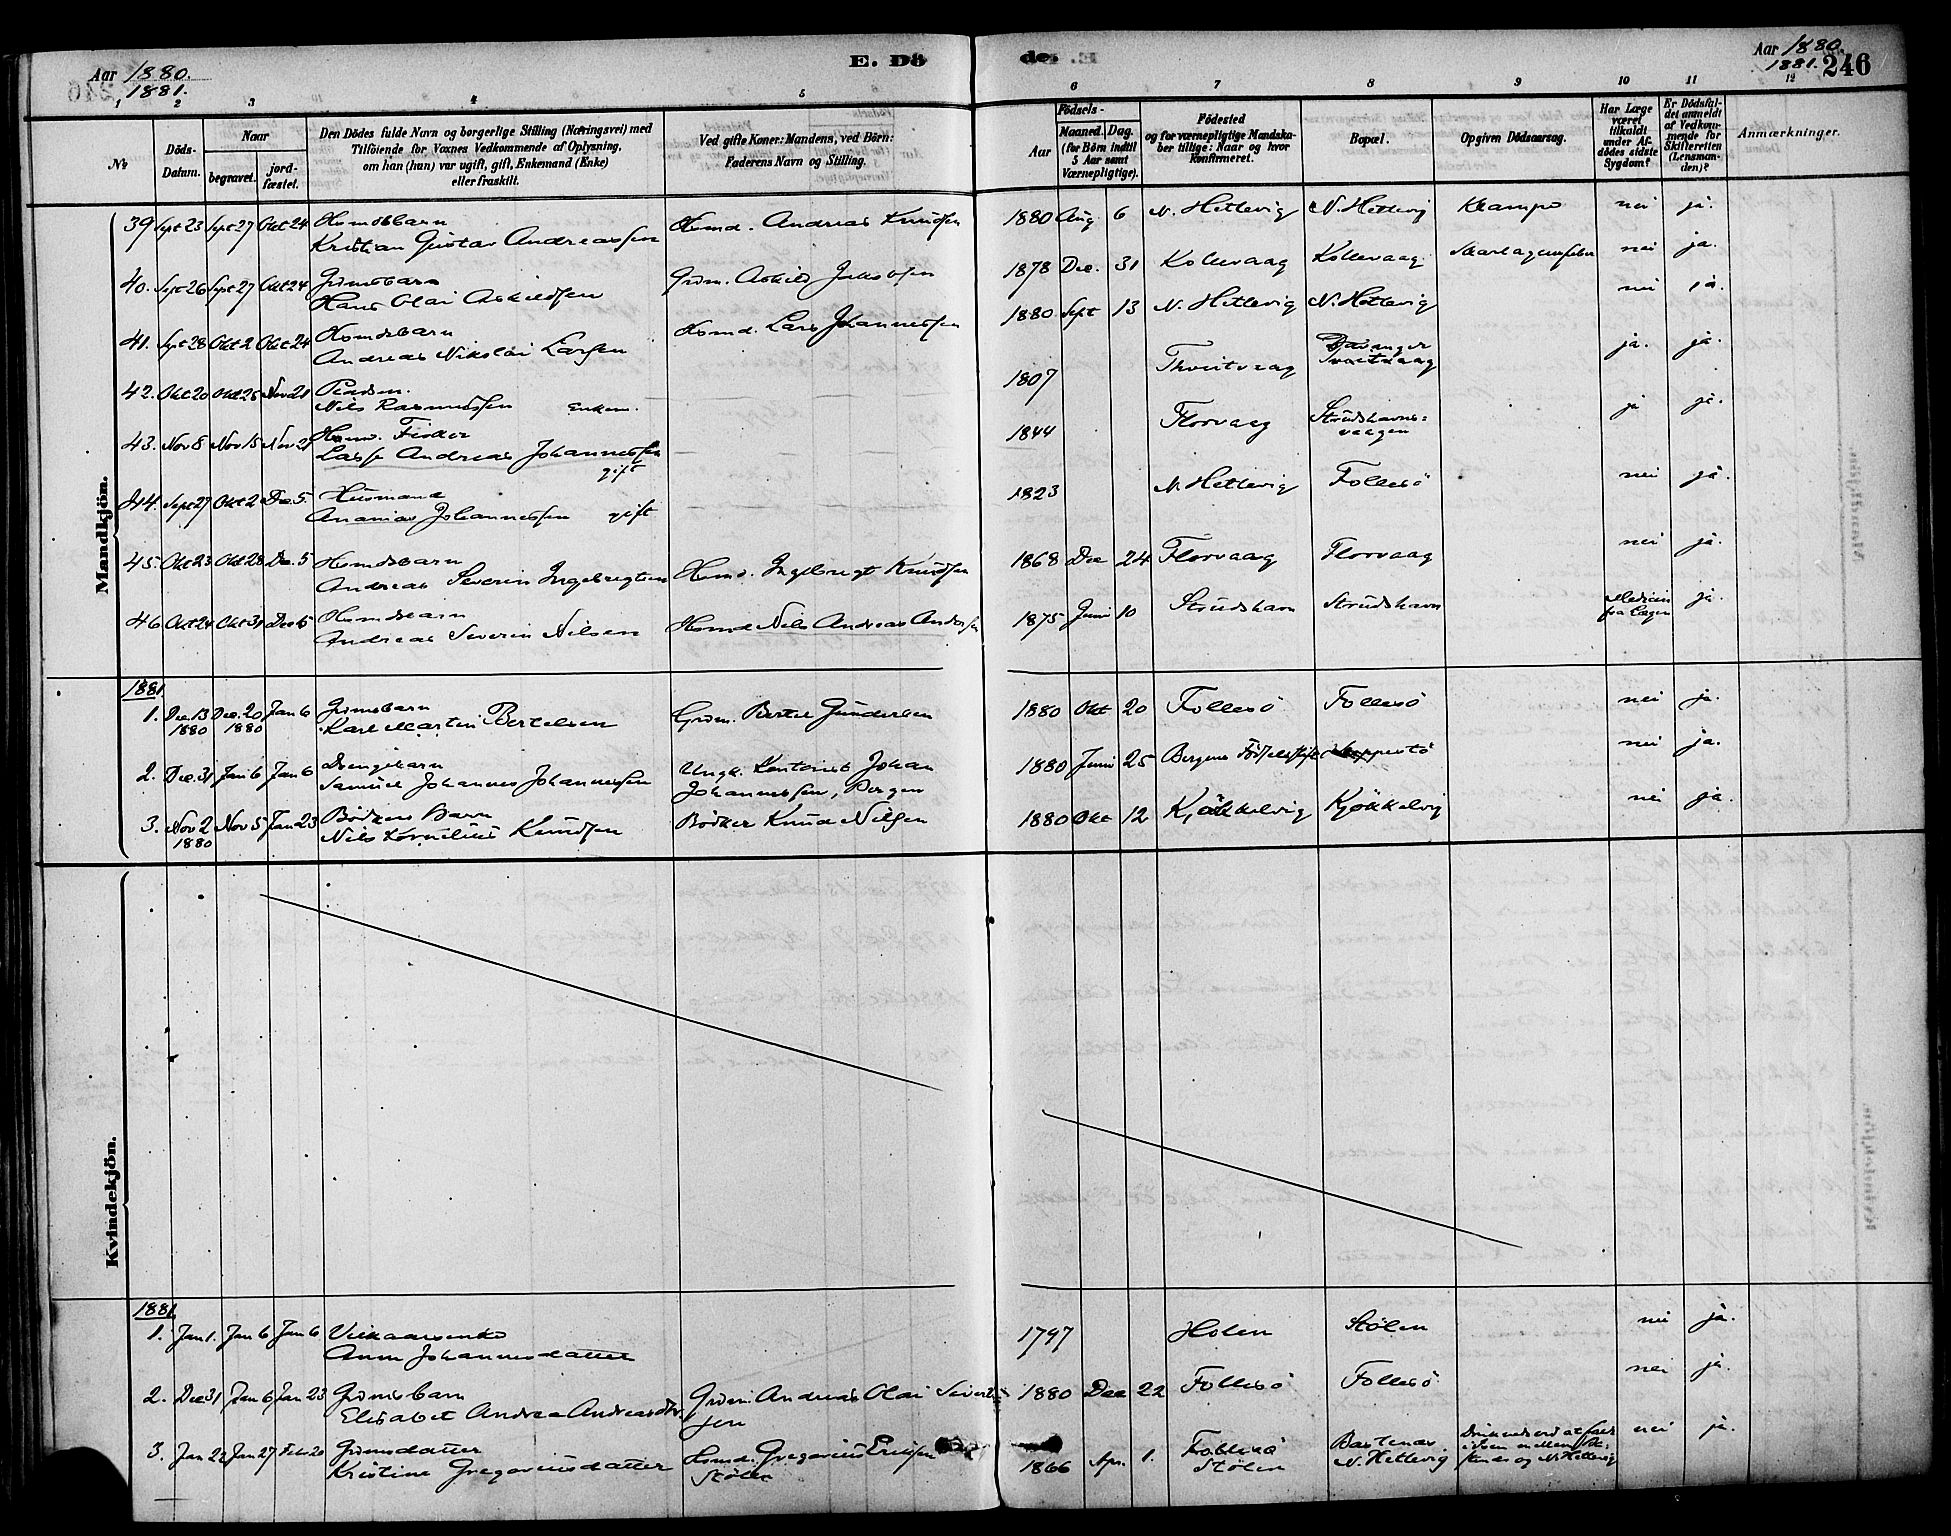 Aar 1880.
1881.
E. Dö
de.
Aar 1880.
1881.
246
1 2 3 4 5 6 7 8 9 10 11 12
No
Döds-Datum.
Naar
begravet.
jord-fæstet.
Den Dödes fulde Navn og borgerlige Stilling (Næringsvei) med
Tilföiende for Voxnes Vedkommende af Oplysning,
om han (hun) var ugift, gift, Enkemand (Enke)
eller fraskilt.
Ved gifte Koner: Mandens, ved Börn:
Faderens Navn og Stilling.
Födsels-
Aar
Maaned. Dag.
(for Börn indtil
5 Aar samt
Værnepligtige).
Födested
og for værnepligtige Mandska-
ber tillige: Naar og hvor
Konfirmeret.
Bopæl.
Opgiven Dödsaarsag.
Har Læge
været
tilkaldt
under Af-
dödes sidste
Sygdom?
Er Dödsfal-
det anmeldt
af Vedkom-
mende for
Skifteretten
(Lensman-
den)?
Anmærkninger.
Mandkjön.
39 Sept 23 Sept 27 Okt 24 Husmdsbarn
Kristian Gustav Andreassen
Husmd. Andreas Knudsen 1880 Aug 6 N. Hettevig N. Hettevig Krampe nei ja.
40. Sept 26 Sept 27 Okt 24 Grmsbarn
Hans Olai Askildsen
Grdm. Askild Jakobsen 1878 Dec. 31 Kollevaag Kollevaag Skarlagensfeber nei ja.
41. Sept 28 Okt 2 Okt 24 Husmdsbarn
Andreas Nikolai Larsen
Husmd. Lars Johannessen 1880 Sept 13 N. Hettevig N. Hettevig nei ja.
42. Okt 20 Okt 25 Nov 21
Nils Rasmussen Enkem. 1807 Thveitvaag
Tveitvaag ja. ja.
43. Nov 8 Nov 15 Nov 21 Husmd. Fisker
Lasse Andreas Johannessen
gift 1844 Florvaag Strudshavns-
vaagen ja ja.
44. Sept 27 Okt 2 Dec 5. Husmand
Ananias Johannessen gift 1823 N. Hettevig Follesö nei ja.
45. Okt 23 Okt 28 Dec. 5 Husmdsbarn
Andreas Severin Ingebrigtsen
Husmd. Ingebrigt Knudsen 1868 Dec 24 Florvaag Florvaag nei ja.
46 Okt 24 Okt 31 Dec 15 Husmdsbarn
Andreas Severin Nilsen
Husmd Nils Andreas Andersen 1875 Juni 10 Strudshavn Strudshavn Medicin
fra Lægen ja.
1881.
1. Dec. 13 Dec. 20 Jan 6 Grmsbarn
1880 1880 Karl Martin Bertelsen
Grdm. Bertel Gundersen 1880 Okt 20 Follesö Follesö nei ja.
2. Dec. 31 Jan 6 Jan 6 Drengebarn
Samuel Johannes Johannessen
Ungk. Kontorist Johan
Johannessen, Bergen 1880 Juni 25 Bergens Födselsstift. nei ja.
3. Nov 2 Nov 5 Jan 23 Bödkers Barn
1880 Nils Kornelius Knudsen
Bödker Knud Nilsen 1880 Okt 12 Kjökkelvig Kjökkelvig nei ja.
Kvindekjön.
1881.
1. Jan 1. Jan 6 Jan 6 Vilkaarsenke
Anna Johannesdatter 1797 Holen Stölen nei ja.
2. Dec 31 Jan 6 Jan 23 Grmsbarn
Elisabet Andrea Andreasdtr.
Grdm. Andreas Olai Sivert-
sen 1880 Dec 22 Follesö Follesö nei ja.
3. Jan 22 Jan 27 Febr 20 Grmsdatter
Kristine Gregoriusdatter
Husmd. Gregorius Eriksen
Stölen 1866 Apr. 1. Follesö
Stölen
N. Hettevig Druknede ved at falde
og N. Hettevig nei ja.